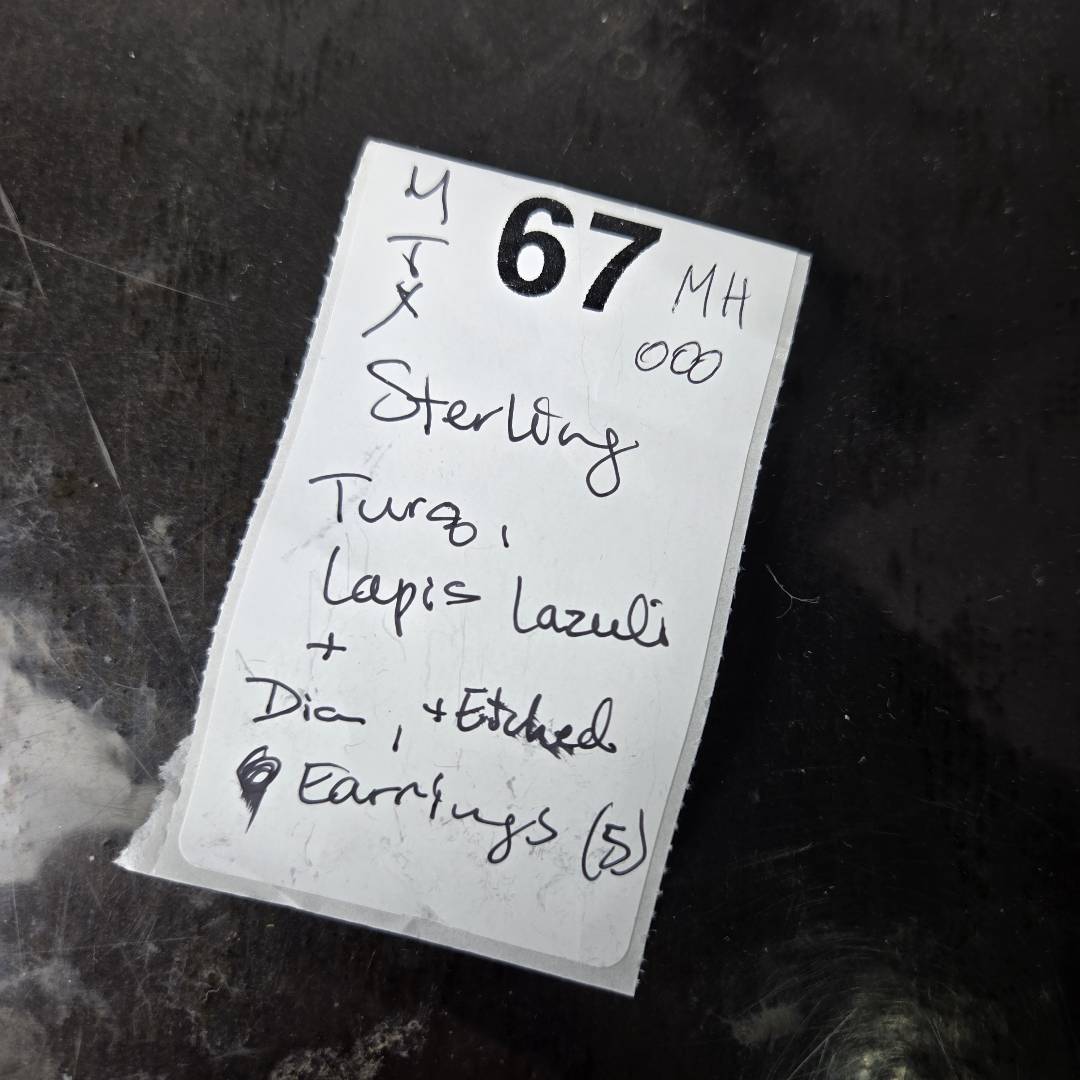 M 67 MH
T
X 000
Sterling
Turq,
Lapis Lazuli
+
Dia, + Etched
Earrings (5)